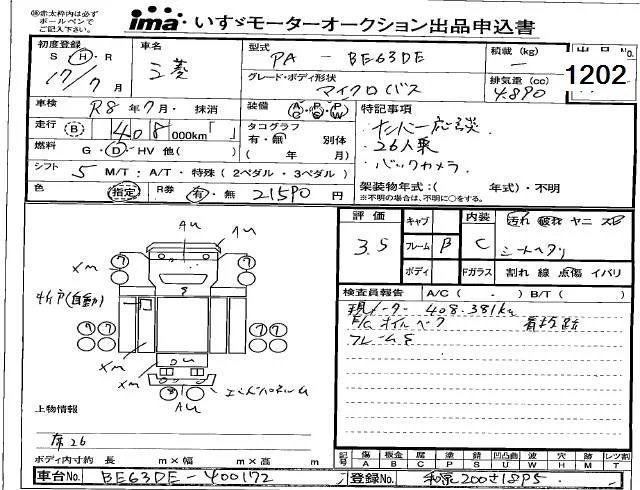 ※赤太枠内は必ず
ボールペンで
ご記入下さい。
ima いすゞモーターオークション出品申込書
初度登録 車名 型式 PA - BE63DE 積載(kg) 出品No.
S・H・R 17/7月 三菱 グレード・ボディ形状 マイクロバス 排気量(cc) 4.890 1202
車検 R8年7月・抹消 装備 AC・PS・PW 特記事項
走行 B 408000km「 」 タコグラフ 有・無 別体 ナンバー応談
燃料 G・D・HV 他( ) ( 年 月) 26人乗
シフト 5 M/T:A/T・特殊(2ペダル・3ペダル) バックカメラ
色 指定 R券 有・無 21590円 架装物年式:( 年式)・不明
※不明の場合は、不明に○をする。
評価 キャブ 内装 汚れ 破れ ヤニ スレ
3.5 フレーム B C シートヘタリ
ボディ Fガラス 割れ 線 点傷 イバリ
検査員報告 A/C( ・ ) B/T( )
現メーター 408.381km
フレームS
AU
AU
Xm
Xm
中折戸(自動)
Xm
Xm
AU
エンドパネルム
上物情報
席26
ボディ内寸約 長 m×幅 m×高 m
記号 傷A 板金B 腐C 塗P 錆S 凹凸曲U 波W 穴H 跡M 欠T レンズ割
車台No. BE63DE-400172 登録No. 和泉200さ1895